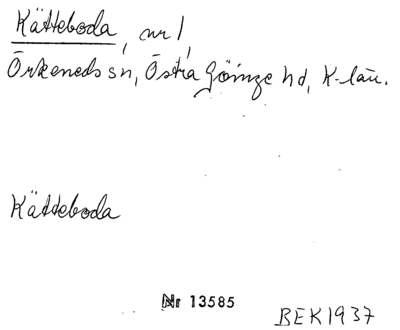 Kätteboda, nr 1,
Örkeneds sn, Östra Göinge hd, K-län.
Kätteboda
Nr 13585
BEK1937